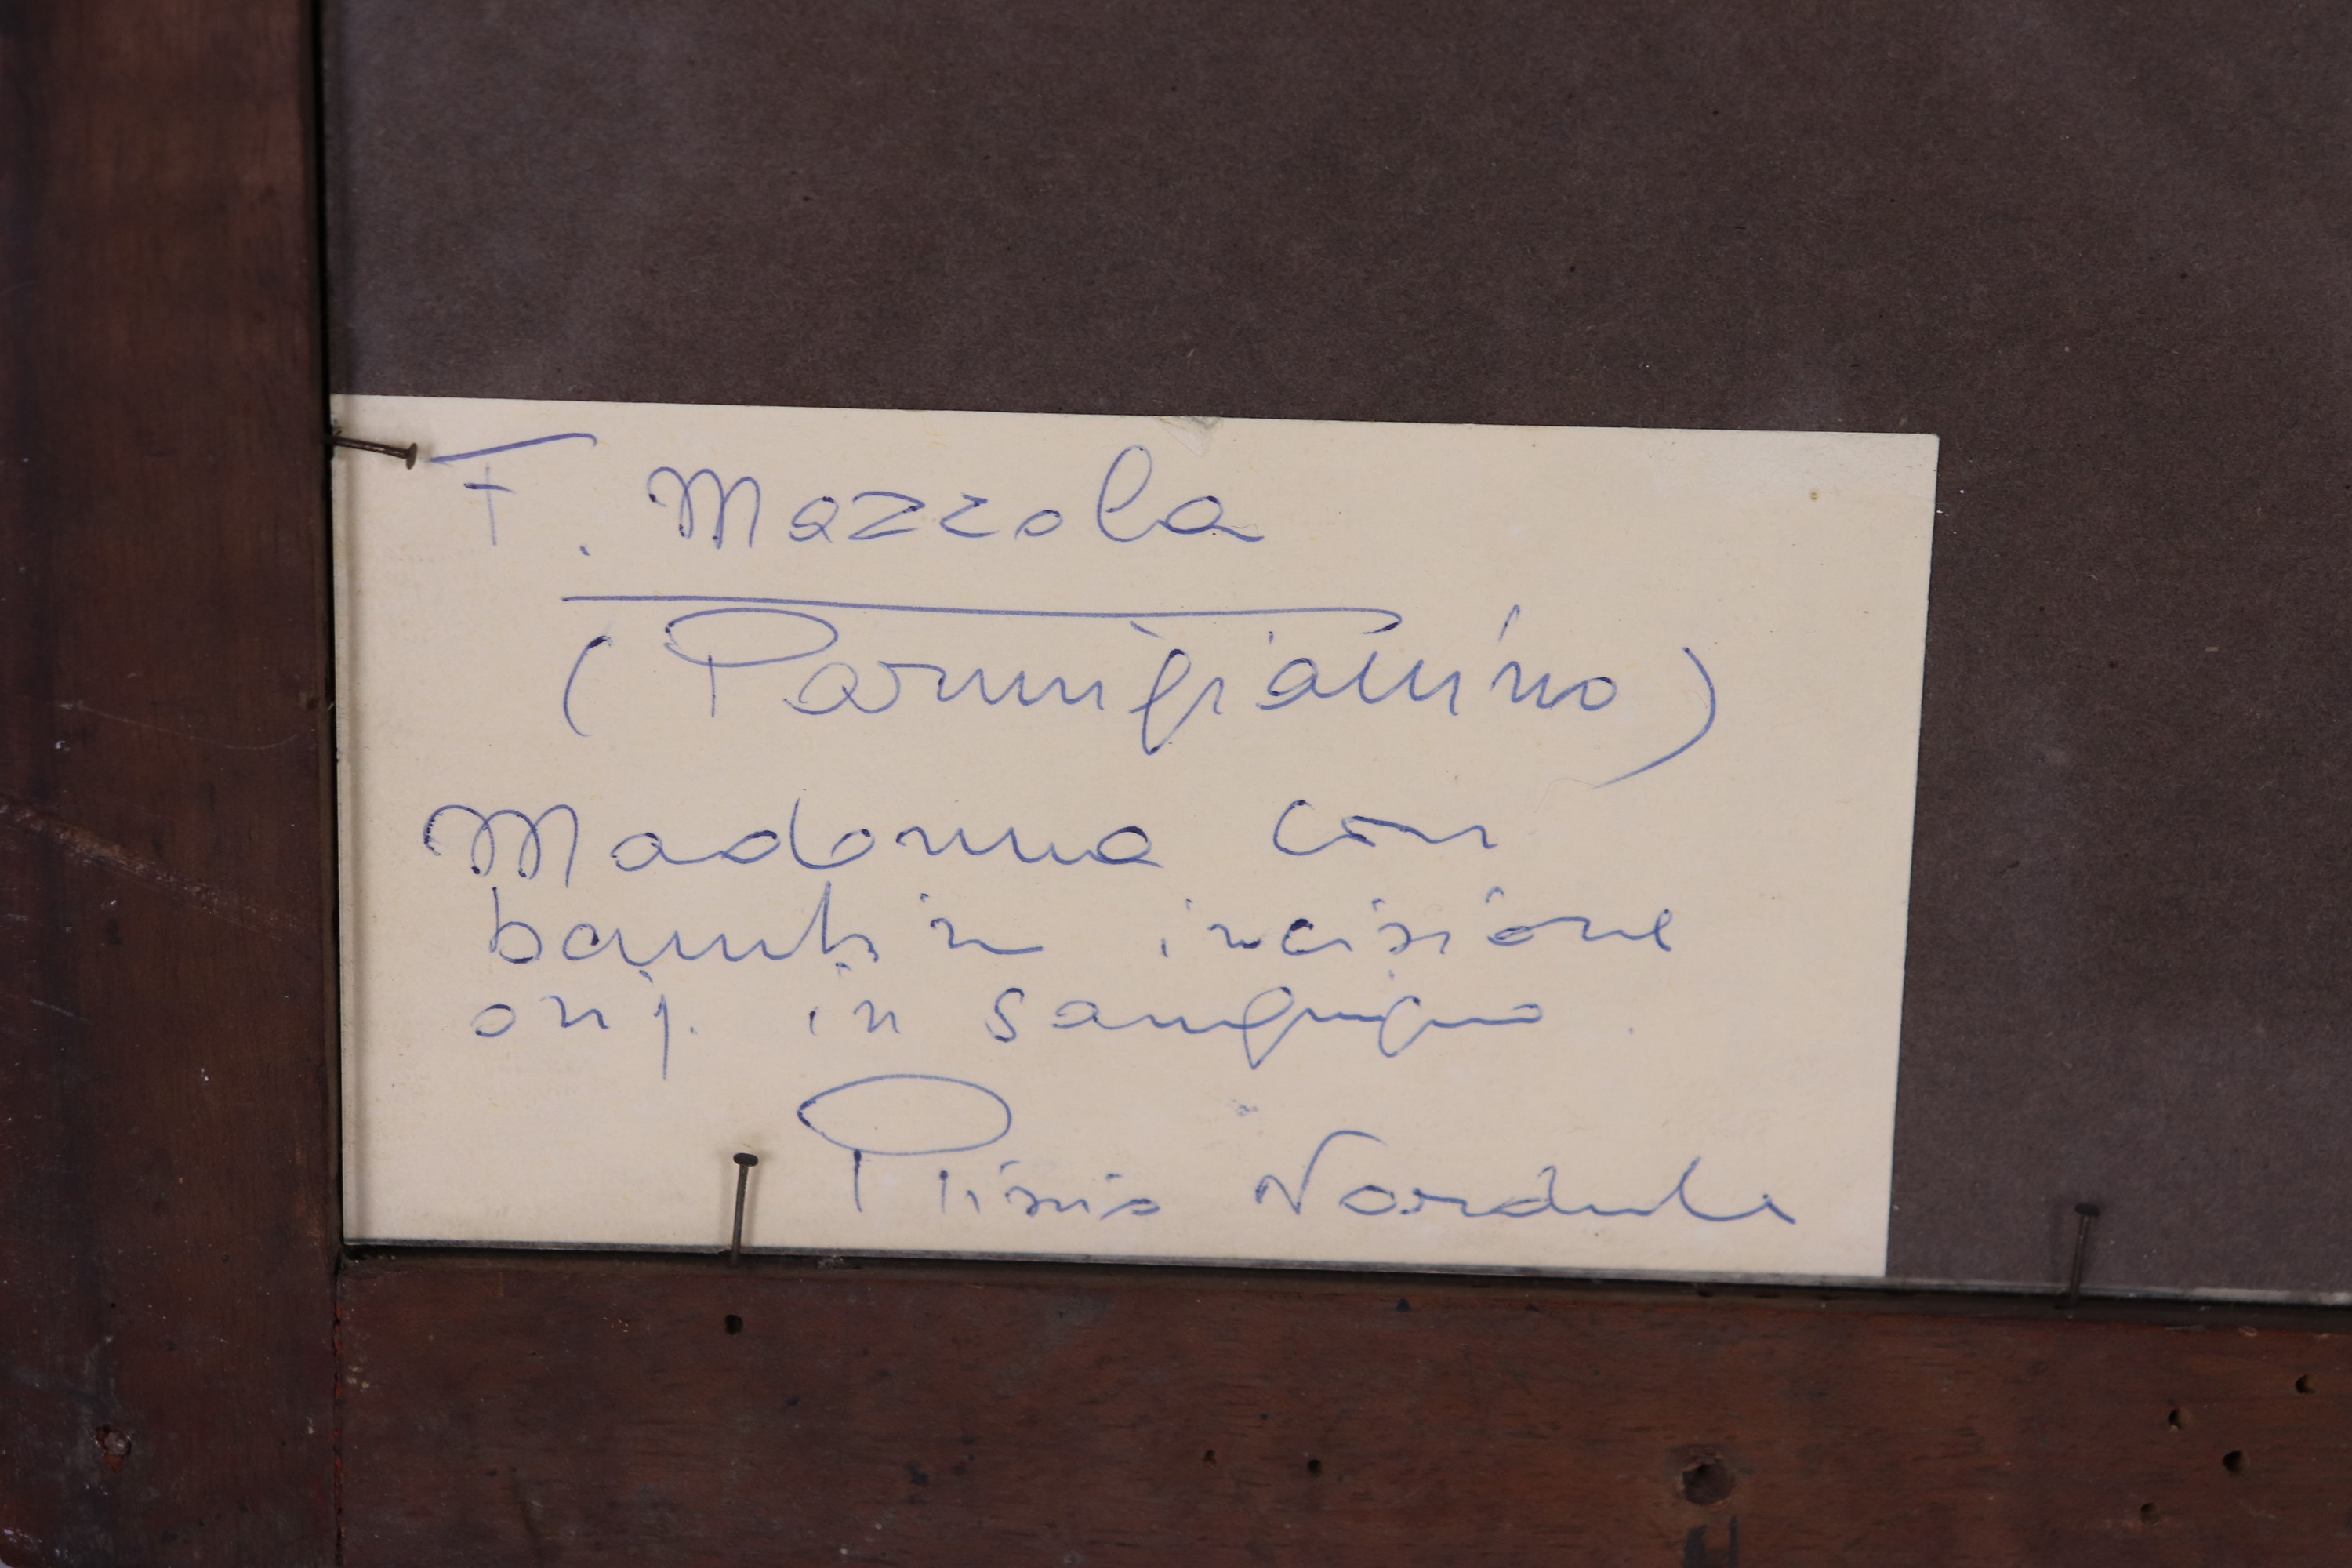 F. Mazzola
(Parmigianino)
Madonna con
bambin incisione
orig. in sanguigno.
Plinio Nardule